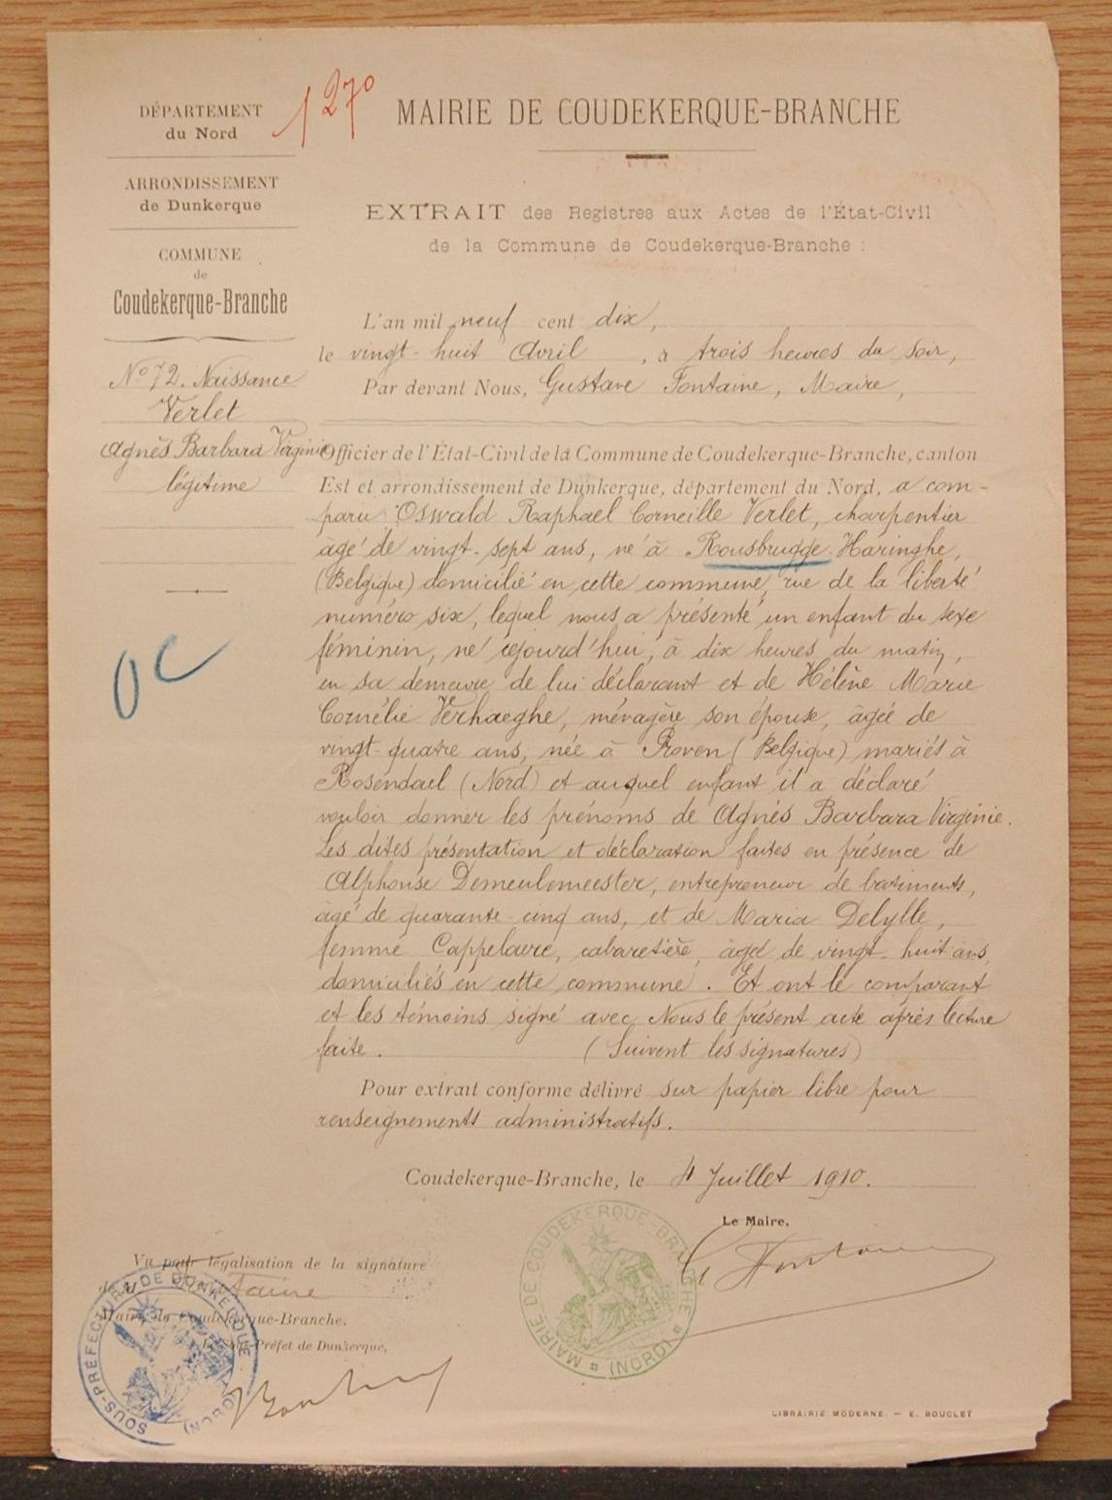 DÉPARTEMENT
du Nord
1270
ARRONDISSEMENT
de Dunkerque
COMMUNE
de
Coudekerque-Branche
No 72. Naissance
Verlet
Agnès Barbara Virginie
légitime
OC
MAIRIE DE COUDEKERQUE-BRANCHE
EXTRAIT des Registres aux Actes de l'État-Civil
de la Commune de Coudekerque-Branche :
L'an mil neuf cent dix,
le vingt-huit Avril, à trois heures du soir,
Par devant Nous, Gustave Fontaine, Maire,
Officier de l'État-Civil de la Commune de Coudekerque-Branche, canton
Est et arrondissement de Dunkerque, département du Nord, a com-
paru Oswald Raphael Corneille Verlet, charpentier
âgé de vingt-sept ans, né à Rousbrugge Haringhe,
(Belgique) domicilié en cette commune, rue de la liberté
numéro six, lequel nous a présenté un enfant du sexe
féminin, né cejourd'hui, à dix heures du matin,
en sa demeure de lui déclarant et de Hélène Marie
Cornélie Verhaeghe, ménagère son épouse, âgée de
vingt-quatre ans, née à Proven (Belgique) mariés à
Rosendael (Nord) et auquel enfant il a déclaré
vouloir donner les prénoms de Agnès Barbara Virginie.
Les dites présentation et déclaration faites en présence de
Alphonse Demeulemeester, entrepreneur de batiments,
âgé de quarante-cinq ans, et de Maria Delylle,
femme Cappelaere, cabaretière, âgée de vingt-huit ans,
domiciliés en cette commune. Et ont le comparant
et les témoins signé avec Nous le présent acte après lecture
faite. (Suivent les signatures)
Pour extrait conforme délivré sur papier libre pour
renseignements administratifs.
Coudekerque-Branche, le 4 Juillet 1910.
Le Maire,
G Fontaine
MAIRIE DE COUDEKERQUE-BRANCHE (NORD)
Vu pour légalisation de la signature
de M Fontaine
Maire de Coudekerque-Branche.
Le Sous-Préfet de Dunkerque,
SOUS-PRÉFECTURE DE DUNKERQUE (NORD)
LIBRAIRIE MODERNE. — E. BOUCLET